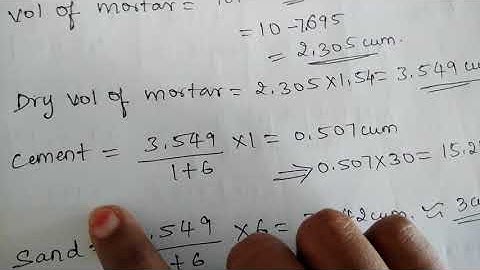 vol of mortar =
= 10 - 7.695
= 2.305 cum.
Dry vol of mortar = 2.305 × 1.54 = 3.549
Cement = 3.549 / 1+6 × 1 = 0.507 cum
⇒ 0.507 × 30 = 15.2
Sand .549 / +6 × 6 = cum. ≈